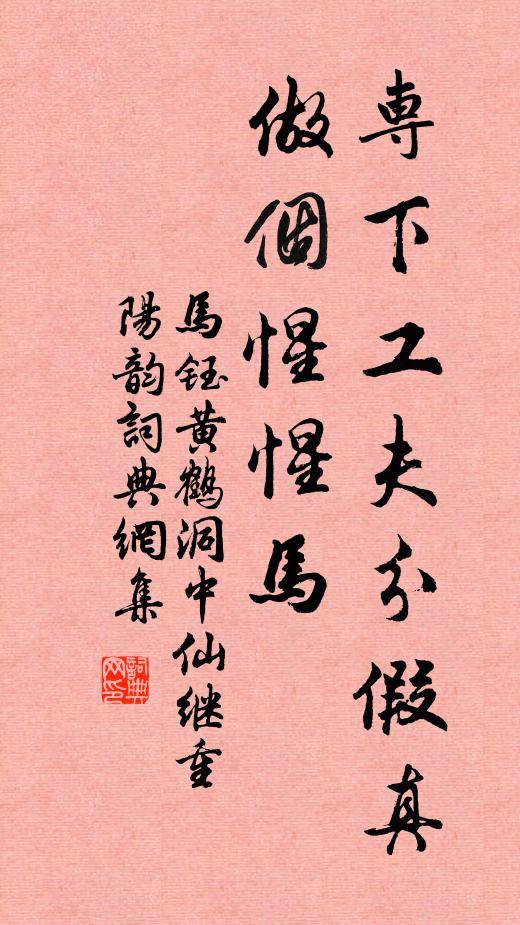 専下工夫分假真
做個惺惺馬
馬鈺黄鶴洞中仙继重
陽韵詞典網集
詞典网印